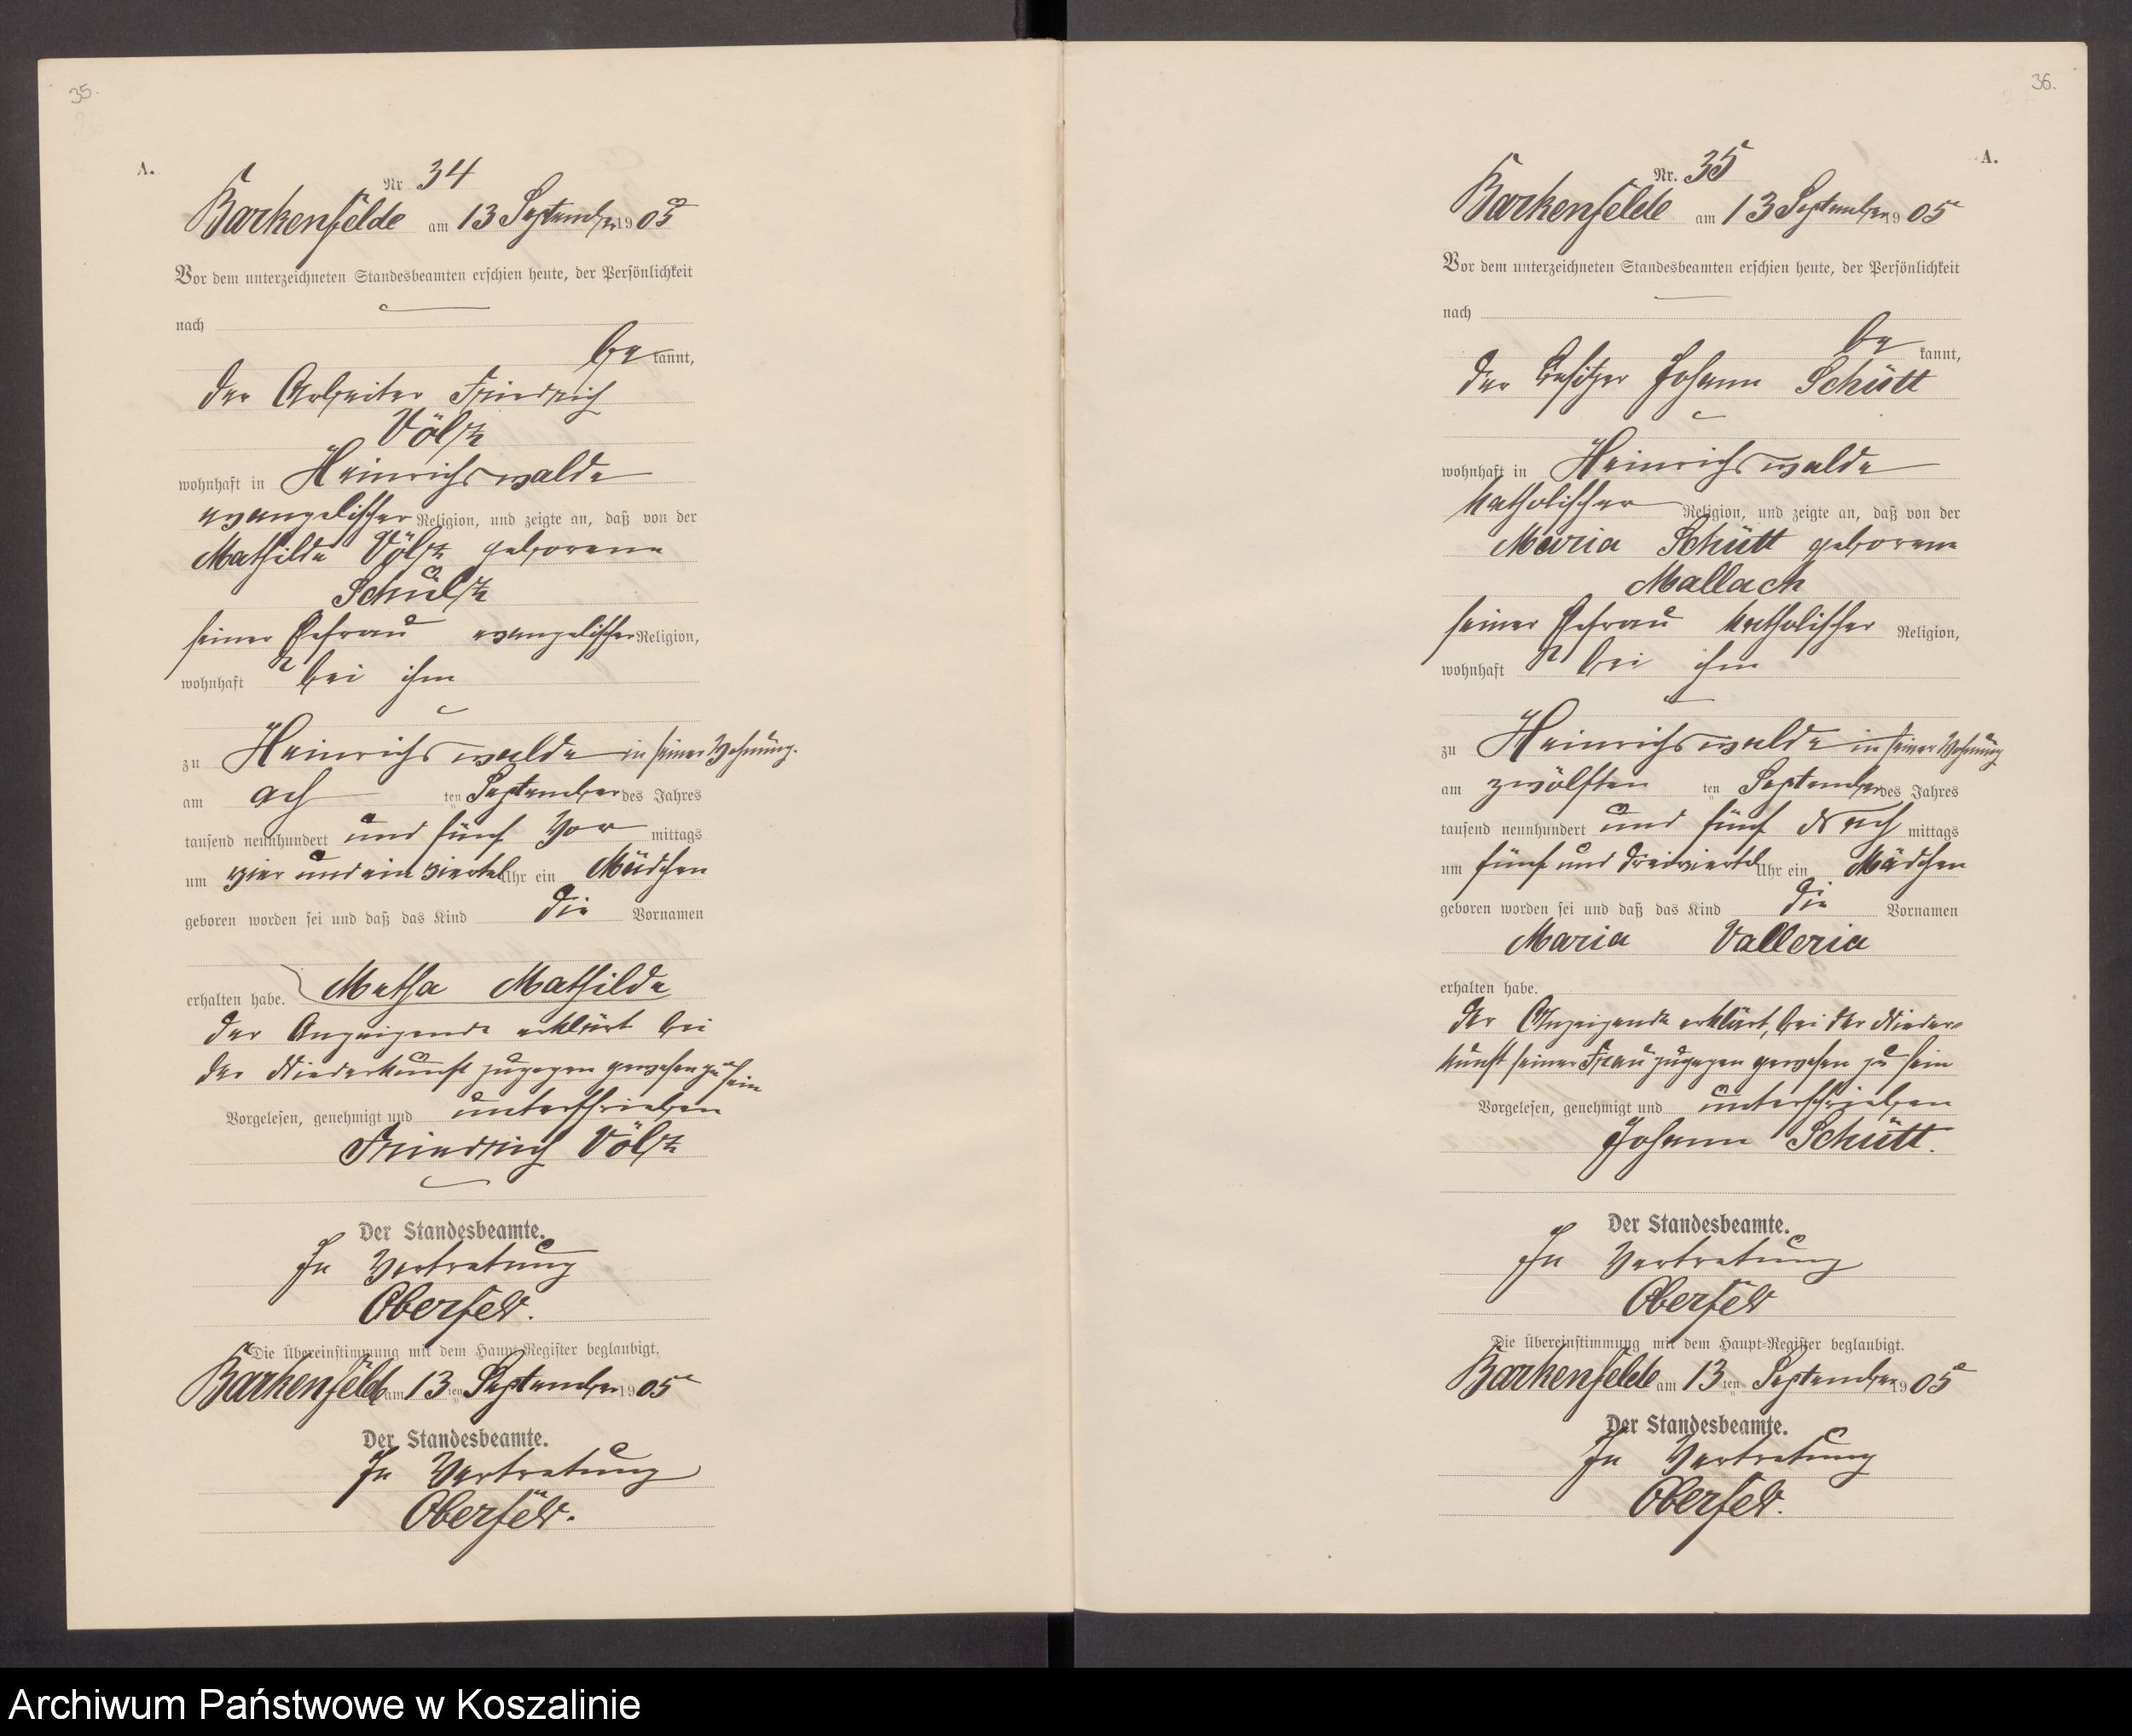 35.
A.
Nr 34
Barkenfelde am 13 September 1905
Vor dem unterzeichneten Standesbeamten erschien heute, der Persönlichkeit
nach
be kannt,
der Arbeiter Friedrich
Völtz
wohnhaft in Heinrichswalde
evangelischer Religion, und zeigte an, daß von der
Mathilde Völtz geborene
Schültz
seiner Ehefrau evangelischer Religion,
wohnhaft bei ihm
zu Heinrichswalde in seiner Wohnung.
am ach ten September des Jahres
tausend neunhundert und fünf Vor mittags
um vier und ein viertel Uhr ein Mädchen
geboren worden sei und daß das Kind die Vornamen
erhalten habe. Metha Mathilde
Der Anzeigende erklärt bei
der Niederkunft zugegen gewesen zu sein
Vorgelesen, genehmigt und unterschrieben
Friedrich Völtz
Der Standesbeamte.
In Vertretung
Oberfeld.
Die Übereinstimmung mit dem Haupt-Register beglaubigt.
Barkenfelde am 13 ten September 1905
Der Standesbeamte.
In Vertretung
Oberfeld.
36.
A.
Nr. 35
Barkenfelde am 13 September 1905
Vor dem unterzeichneten Standesbeamten erschien heute, der Persönlichkeit
nach
be kannt,
der Besitzer Johann Schütt
wohnhaft in Heinrichswalde
katholischer Religion, und zeigte an, daß von der
Maria Schütt geborene
Mallach
seiner Ehefrau katholischer Religion,
wohnhaft bei ihm
zu Heinrichswalde in seiner Wohnung
am zwölften ten September des Jahres
tausend neunhundert und fünf Nach mittags
um fünf und dreiviertel Uhr ein Mädchen
geboren worden sei und daß das Kind die Vornamen
Maria Valleria
erhalten habe.
Der Anzeigende erklärt, bei der Nieder-
kunft seiner Frau zugegen gewesen zu sein
Vorgelesen, genehmigt und unterschrieben
Johann Schütt.
Der Standesbeamte.
In Vertretung
Oberfeld
Die Übereinstimmung mit dem Haupt-Register beglaubigt.
Barkenfelde am 13 ten September 1905
Der Standesbeamte.
In Vertretung
Oberfeld.
Archiwum Państwowe w Koszalinie